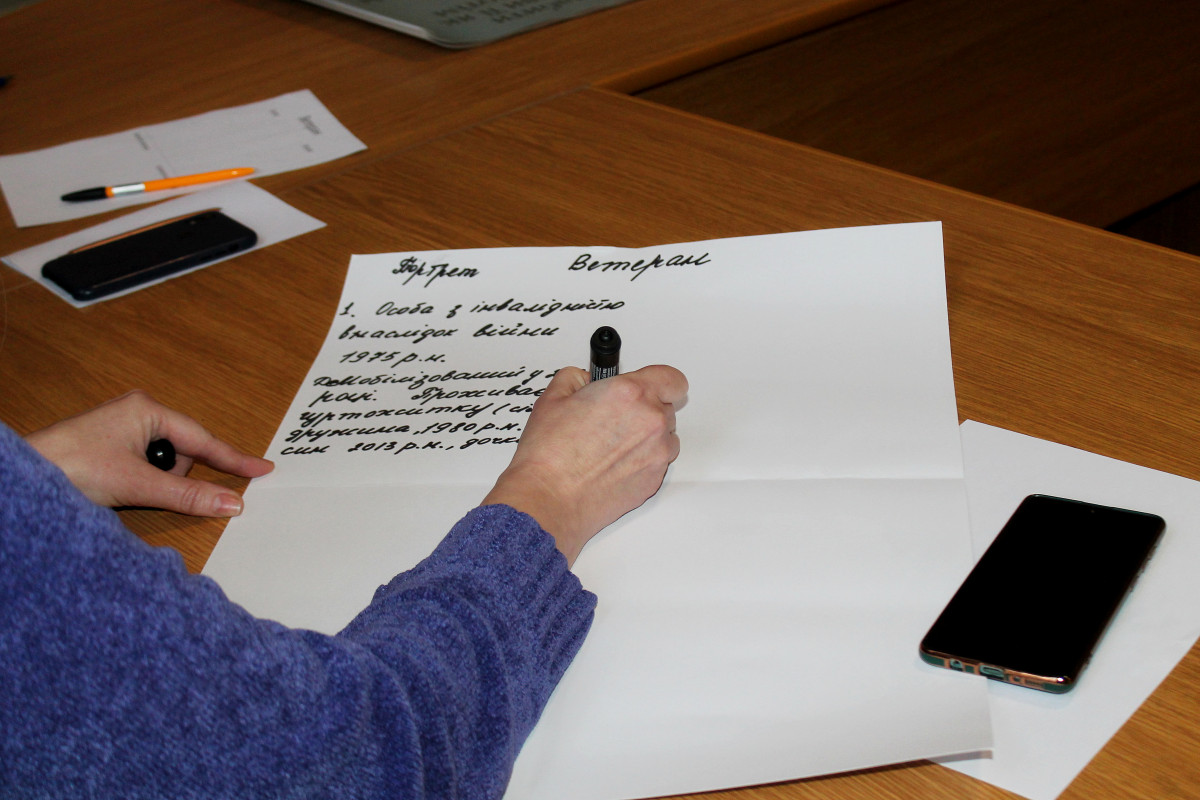 Портрет Ветеран
1. Особа з інвалідністю
внаслідок війни
1975 р.н.
демобілізований у
році. Проживає
гуртожитку (сі
дружина, 1980 р.н.
син 2013 р.н., дочк